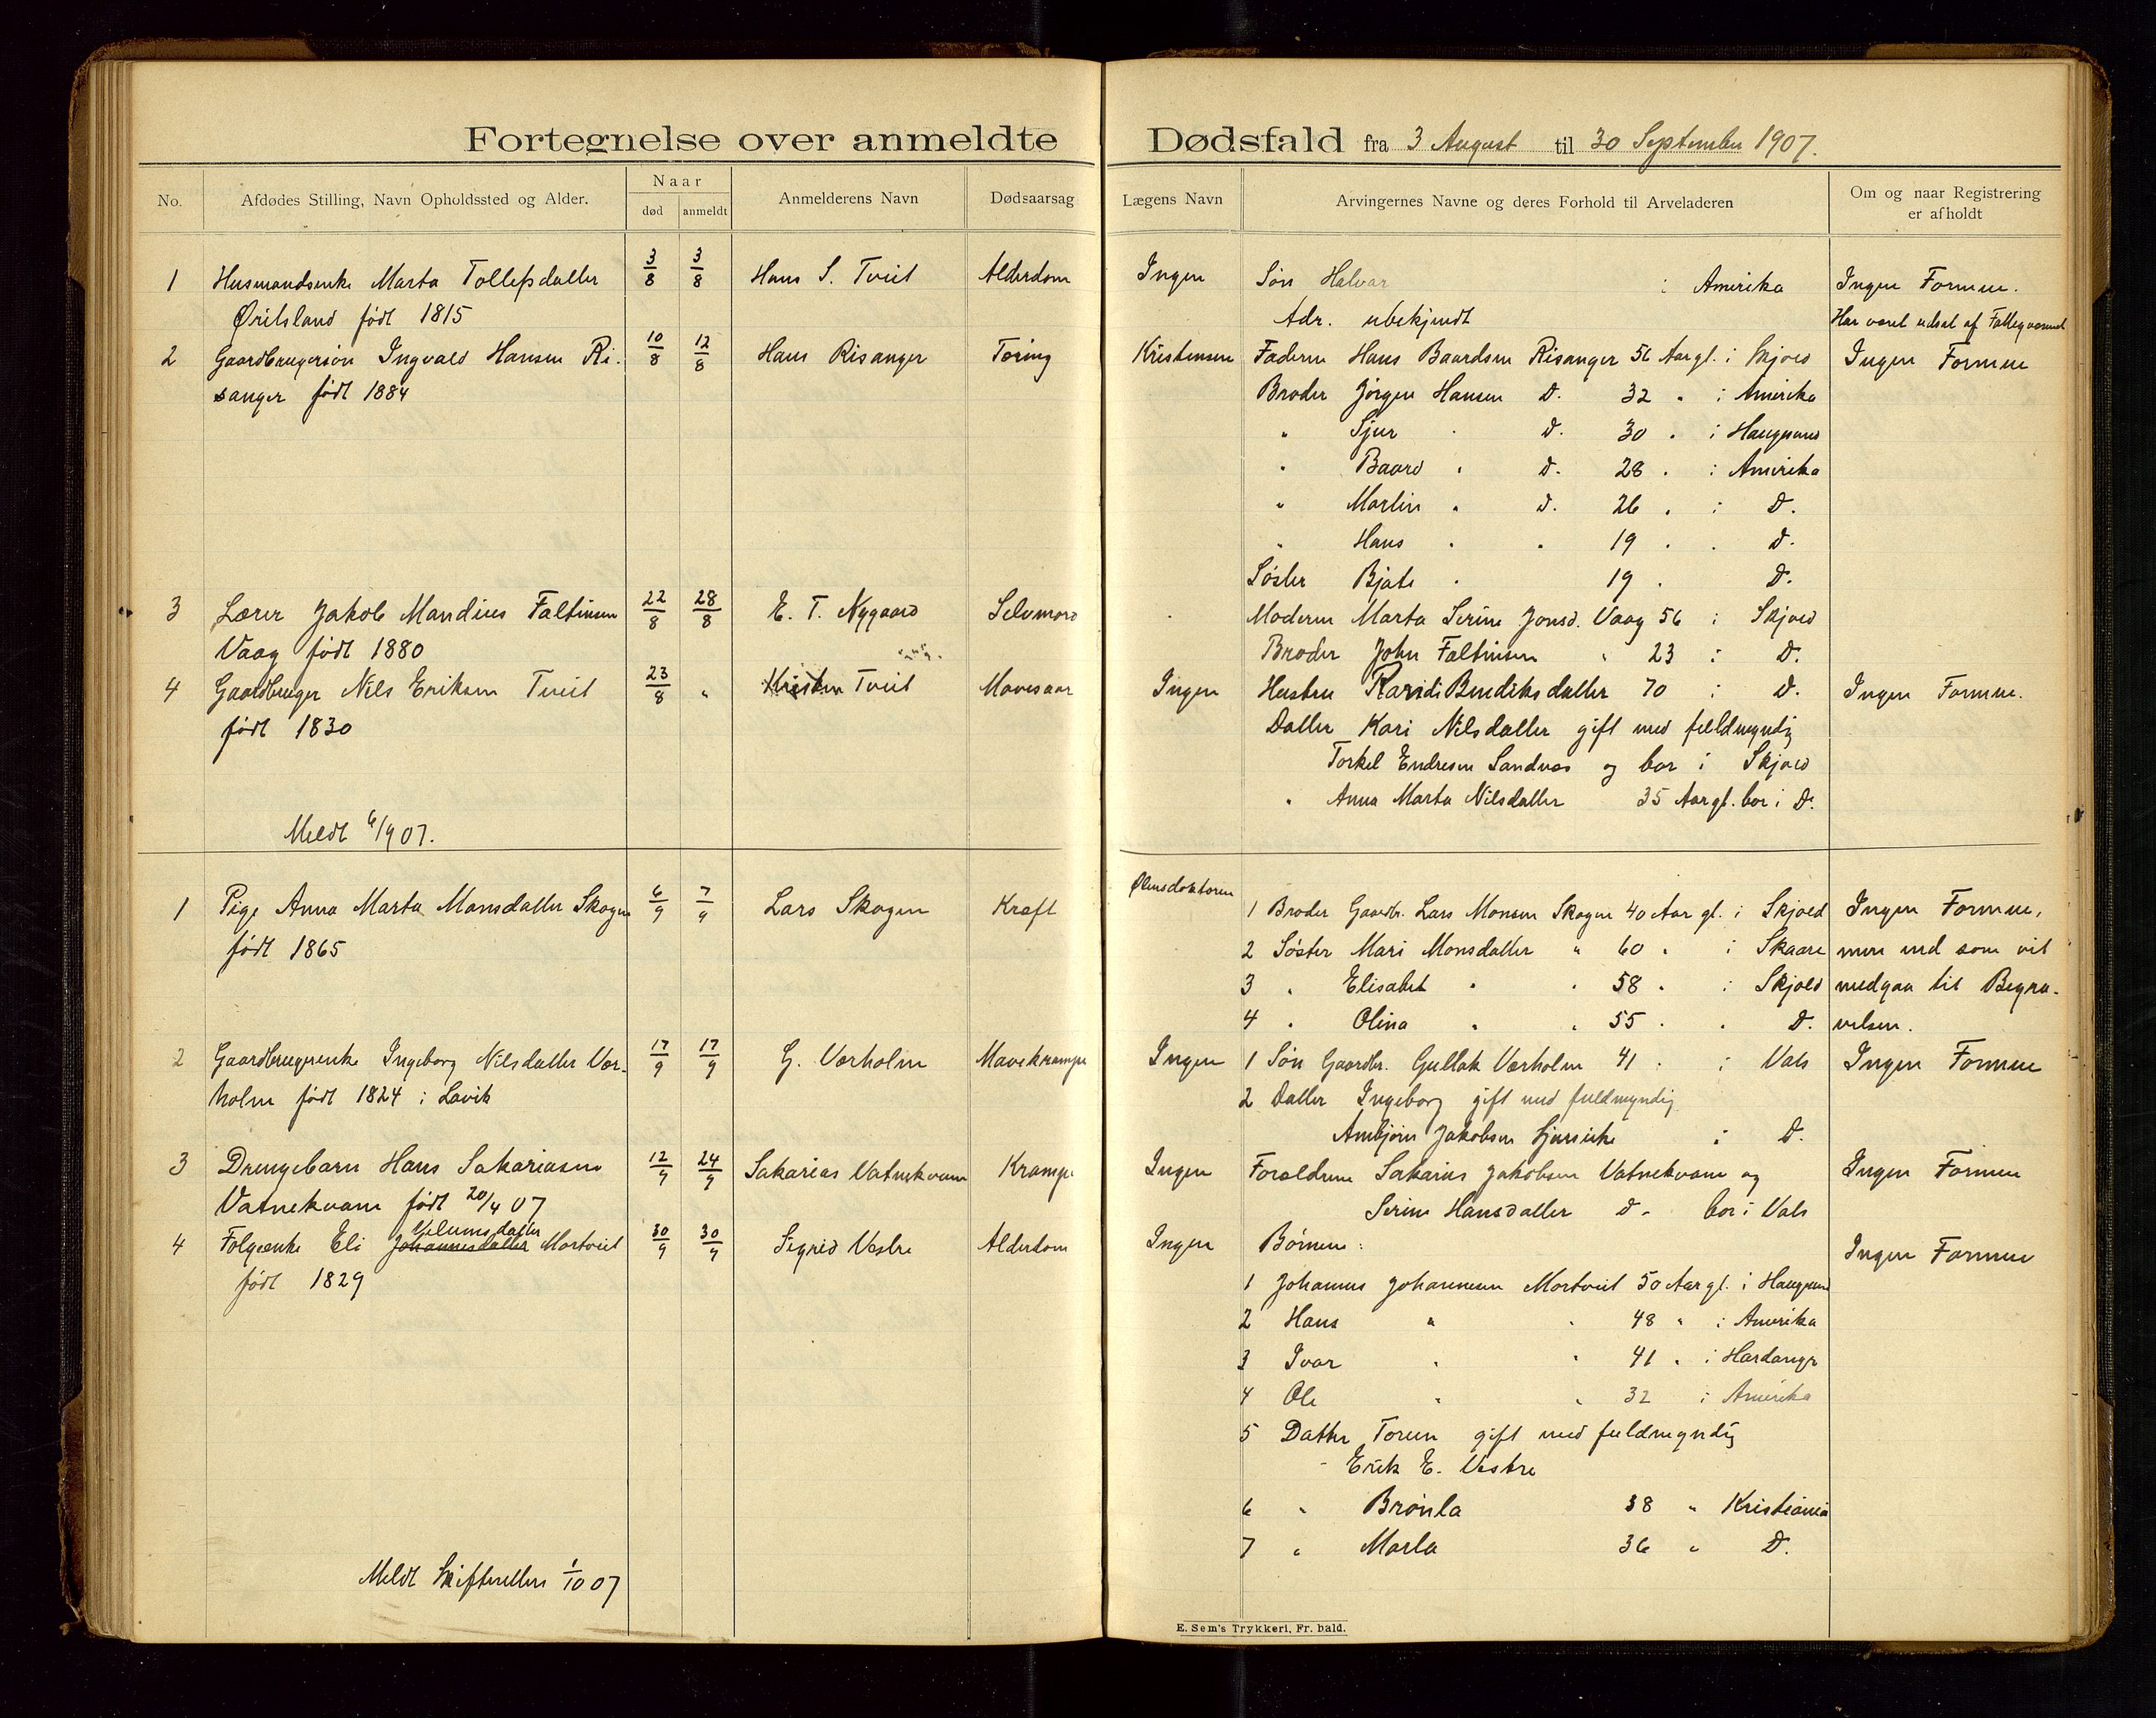 Fortegnelse over anmeldte Dødsfald fra 3 August til 30 September 1907.
No.
Afdødes Stilling, Navn Opholdssted og Alder.
Naar
død
anmeldt
Anmelderens Navn
Dødsaarsag
Lægens Navn
Arvingernes Navne og deres Forhold til Arveladeren
Om og naar Registrering
er afholdt
1 Husmandsenke Marta Tollefsdatter 3/8 3/8 Hans S. Tveit Alderdom Ingen Søn Halvar i Amerika Ingen Formue.
Øritsland født 1815 Adr. ubekjendt Har været udsat af Fattigvæsenet
2 Gaardbrugersøn Ingvald Hansen Ri- 10/8 12/8 Hans Risanger Tæring Kristensen Faderen Hans Baardsen Risanger 56 Aar gl. i Skjold Ingen Formue
sanger født 1884 Broder Jørgen Hansen D. 32 " i Amerika
" Sjur " D. 30 " i Haugesund
" Baard " D. 28 " i Amerika
" Martin " D. 26 " i D.
" Hans " " 19 " " D.
Søster Bjate " 19 " D.
3 Lærer Jakob Mandius Faltinsen 22/8 28/8 E. T. Nygaard Selvmord " Moderen Marta Serine Jonsd. Vaag 56 i Skjold
Vaag født 1880 Broder John Faltinsen " 23 i D.
4 Gaardbruger Nils Eriksen Tveit 23/8 " Kristen Tveit Mavesaar Ingen Hustru Randi Bendiksdatter 70 i D. Ingen Formue.
født 1830 Datter Kari Nilsdatter gift med fuldmyndig
Torkel Endresen Sandvas og bor i Skjold
" Anna Marta Nilsdatter 35 Aar gl. bor i D.
Meldt 6/9 07.
1 Pige Anna Marta Monsdatter Skogen 6/9 7/9 Lars Skogen Kræft Ølensdoktoren 1 Broder Gaardbr. Lars Monsen Skogen 40 Aar gl. i Skjold Ingen Formue,
født 1865 2 Søster Mari Monsdatter " 60 " i Skaare mere end som vil
3 " Elisabet " " 58 " i Skjold medgaa til Begra-
4 " Olina " " 55 " " D. velsen.
2 Gaardbrugerenke Ingeborg Nilsdatter Vær- 17/9 17/9 G. Værholm Mavekrampe Ingen 1 Søn Gaardbr. Gullak Værholm 41 " i Vats Ingen Formue
holm født 1824 i Lavik 2 Datter Ingeborg gift med fuldmyndig
Ambjørn Jakobsen i D.
3 Drengebarn Hans Sakariasen 12/9 24/9 Sakarias Vatnekvam Krampe Ingen Forældrene Sakarias Jakobsen Vatnekvam og Ingen Formue
Vatnekvam født 20/4 07 Serine Hansdatter D. bor i Vats
4 Folgeenke Eli Johannesdatter Mortveit 30/9 30/9 Sigrid Vestre Alderdom Ingen Børnene: Ingen Formue
født 1829 1 Johannes Johannesen Mortveit 50 Aar gl. i Haugesund
2 Hans " " 48 " i Amerika
3 Ivar " " 41 " i Hardanger
4 Ole " " 32 i Amerika
5 Datter Torun gift med fuldmyndig
Erik E. Vestre
6 " Brønla 38 " Kristiania
7 " Marta 36 " D.
Meldt Skifteretten 1/10 07
E. Sem's Trykkeri, Fr. hald.